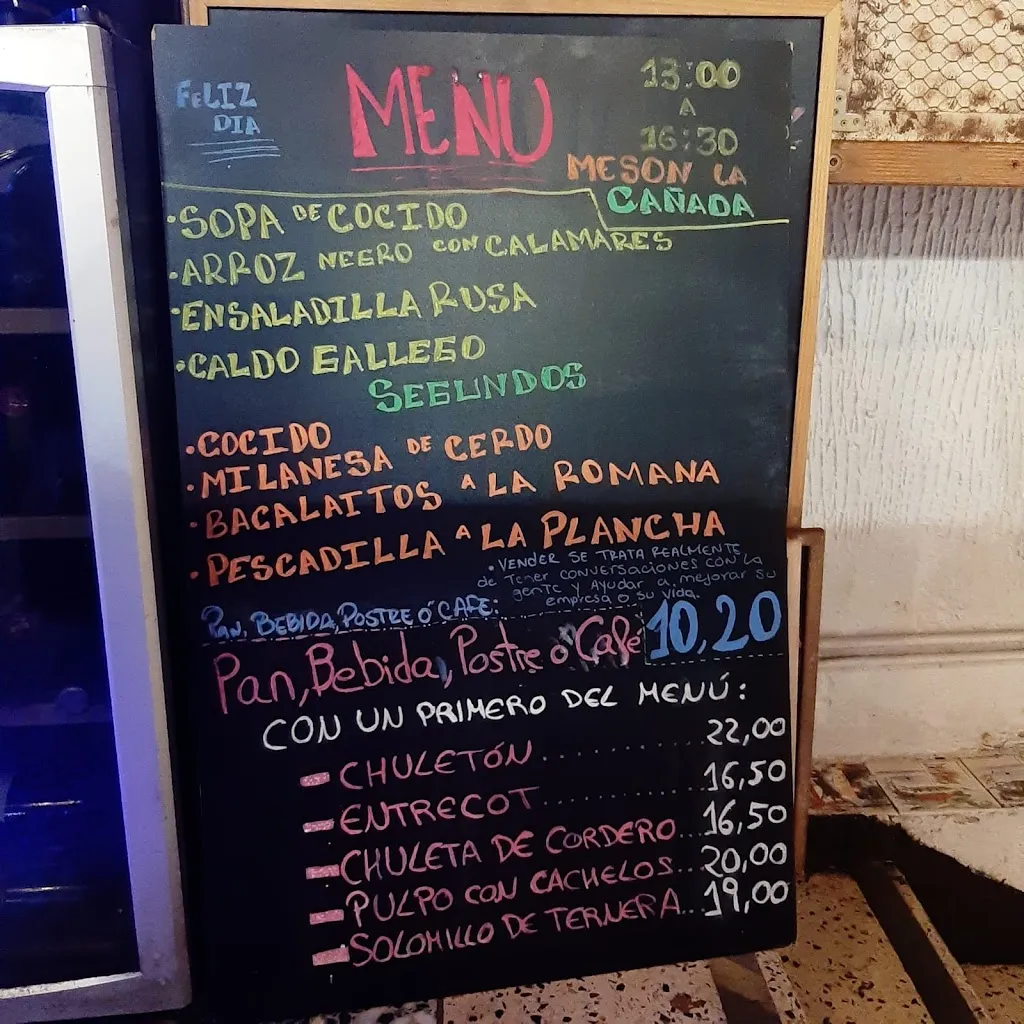 FELIZ
DIA
MENU
13:00
A
16:30
MESON LA
CAÑADA
•SOPA DE COCIDO
•ARROZ NEGRO CON CALAMARES
•ENSALADILLA RUSA
•CALDO GALLEGO
SEGUNDOS
•COCIDO
•MILANESA DE CERDO
•BACALAITOS A LA ROMANA
•PESCADILLA A LA PLANCHA
•VENDER SE TRATA REALMENTE
de Tener CONVERSACIONES CON LA
gente y Ayudar a mejorar su
empresa o su vida.
PAN, BEBIDA, POSTRE Ó CAFE:
10,20
Pan, Bebida, Postre ó Café
CON UN PRIMERO DEL MENÚ:
- CHULETÓN.......... 22,00
- ENTRECOT.......... 16,50
- CHULETA DE CORDERO... 16,50
- PULPO CON CACHELOS... 20,00
- SOLOMILLO DE TERNERA... 19,00